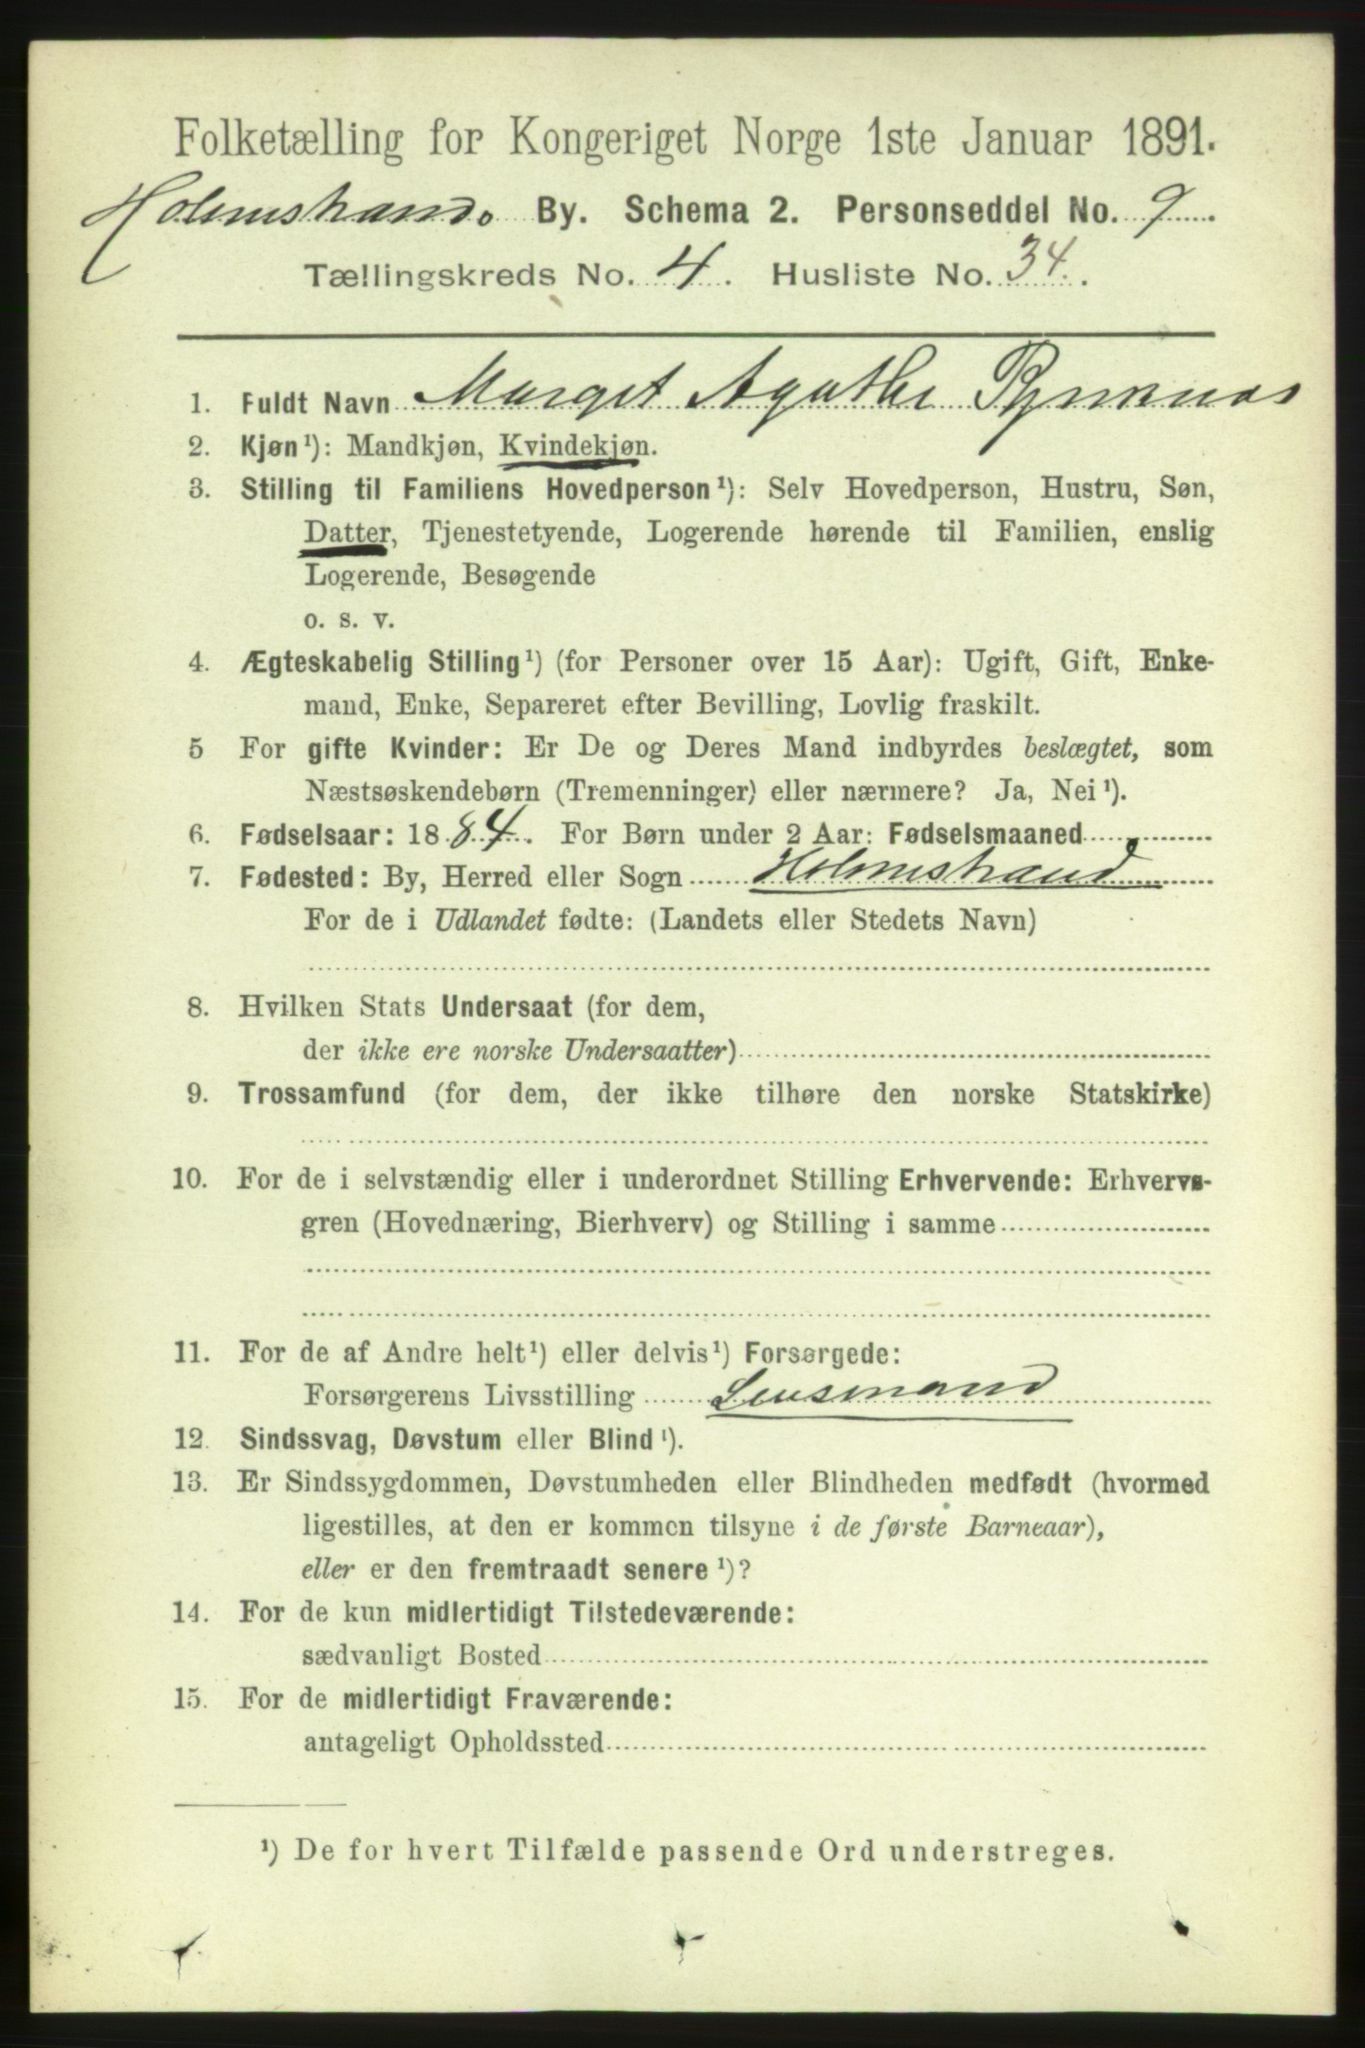 Folketælling for Kongeriget Norge 1ste Januar 1891.
Holmestrand. By. Schema 2. Personseddel No. 9.
Tællingskreds No. 4. Husliste No. 34.
1. Fuldt Navn Marget Agathe
2. Kjøn¹): Mandkjøn, Kvindekjøn.
3. Stilling til Familiens Hovedperson¹): Selv Hovedperson, Hustru, Søn,
Datter, Tjenestetyende, Logerende hørende til Familien, enslig
Logerende, Besøgende
o. s. v.
4. Ægteskabelig Stilling¹) (for Personer over 15 Aar): Ugift, Gift, Enke-
mand, Enke, Separeret efter Bevilling, Lovlig fraskilt.
5 For gifte Kvinder: Er De og Deres Mand indbyrdes beslægtet, som
Næstsøskendebørn (Tremenninger) eller nærmere? Ja, Nei¹).
6. Fødselsaar: 1884. For Børn under 2 Aar: Fødselsmaaned
7. Fødested: By, Herred eller Sogn Holmestrand
For de i Udlandet fødte: (Landets eller Stedets Navn)
8. Hvilken Stats Undersaat (for dem,
der ikke ere norske Undersaatter)
9. Trossamfund (for dem, der ikke tilhøre den norske Statskirke)
10. For de i selvstændig eller i underordnet Stilling Erhvervende: Erhvervs-
gren (Hovednæring, Bierhverv) og Stilling i samme
11. For de af Andre helt¹) eller delvis¹) Forsørgede:
Forsørgerens Livsstilling Lensmand
12. Sindssvag, Døvstum eller Blind¹).
13. Er Sindssygdommen, Døvstumheden eller Blindheden medfødt (hvormed
ligestilles, at den er kommen tilsyne i de første Barneaar),
eller er den fremtraadt senere¹)?
14. For de kun midlertidigt Tilstedeværende:
sædvanligt Bosted
15. For de midlertidigt Fraværende:
antageligt Opholdssted
¹) De for hvert Tilfælde passende Ord understreges.